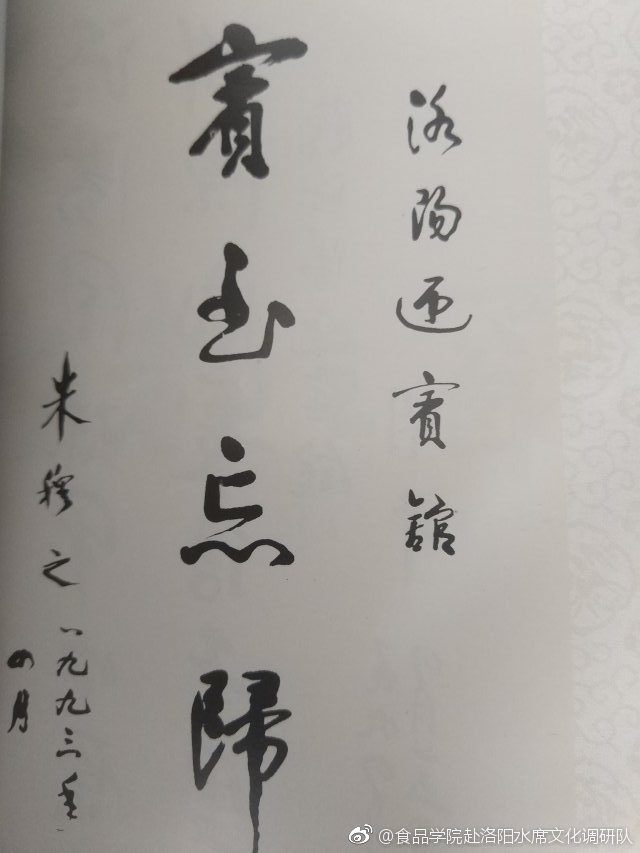 洛阳迎賓舘
賓至忘歸
朱穆之
一九九三年
四月
@食品学院赴洛阳水席文化调研队